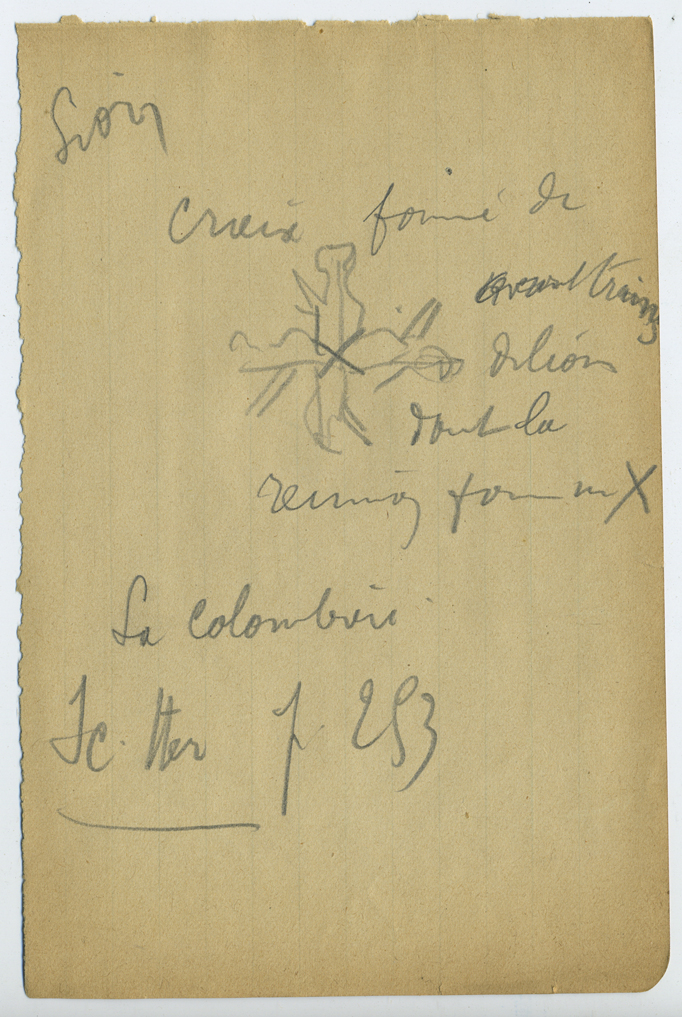 Lion
Croix formé de
avant trains
de lions
dont la
reunion forme un X
La Colombiere
Sc. Her p 253